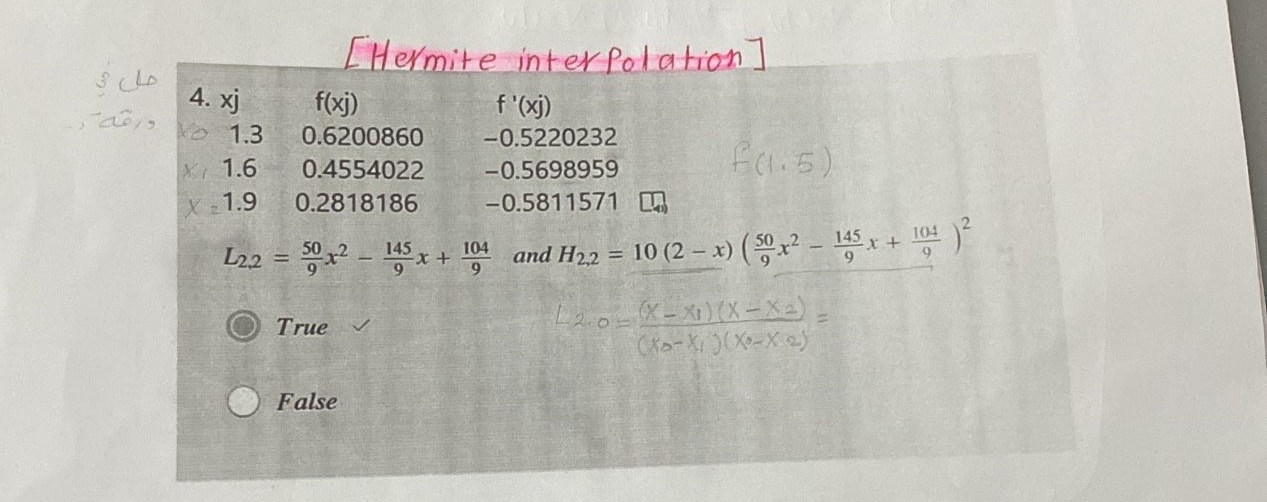 [Hermite interpolation]
حل في
ورقة
4. xj f(xj) f '(xj)
x0 1.3 0.6200860 −0.5220232
x1 1.6 0.4554022 −0.5698959
x2 1.9 0.2818186 −0.5811571
f(1.5)
L2,2 = 50/9 x² − 145/9 x + 104/9 and H2,2 = 10 (2 − x) ( 50/9 x² − 145/9 x + 104/9 )²
True ✓
L2.0 = (x − x1)(x − x2) / (x0 − x1)(x0 − x2) =
False